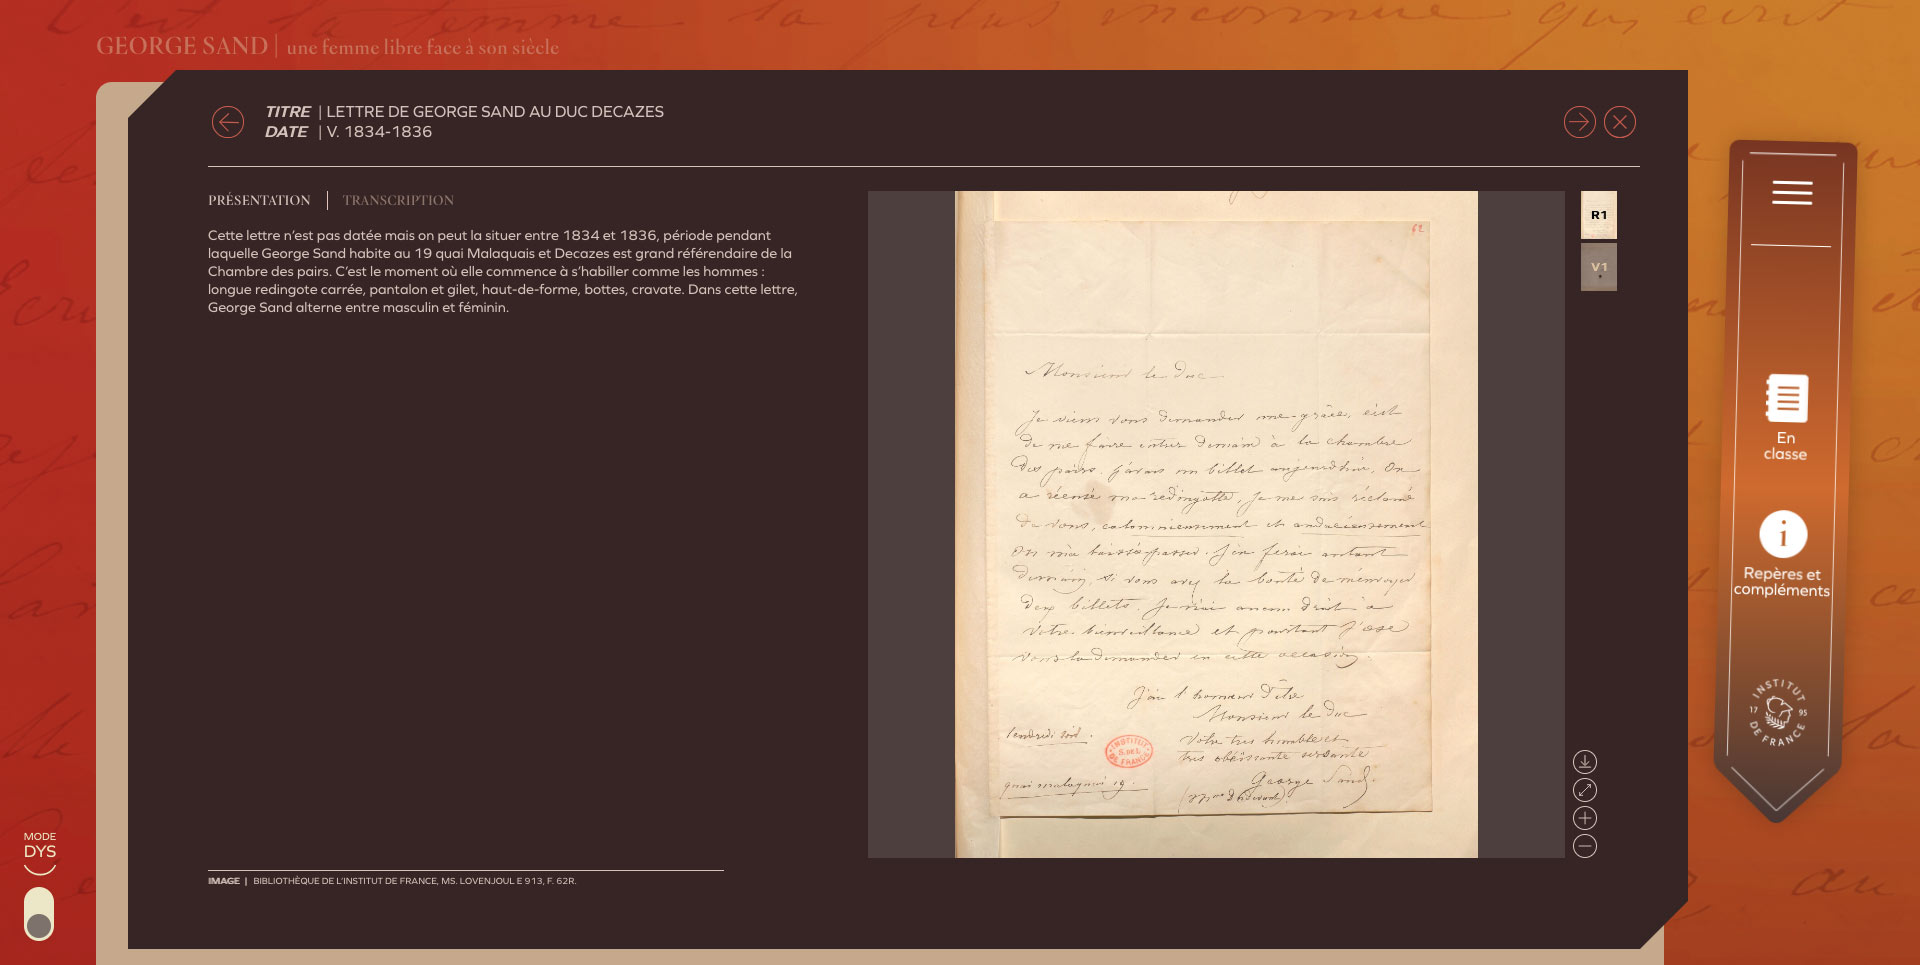 C'est la femme la plus inconnue qui écrit
GEORGE SAND | une femme libre face à son siècle
TITRE | LETTRE DE GEORGE SAND AU DUC DECAZES
DATE | V. 1834-1836
PRÉSENTATION | TRANSCRIPTION
Cette lettre n’est pas datée mais on peut la situer entre 1834 et 1836, période pendant
laquelle George Sand habite au 19 quai Malaquais et Decazes est grand référendaire de la
Chambre des pairs. C’est le moment où elle commence à s’habiller comme les hommes :
longue redingote carrée, pantalon et gilet, haut-de-forme, bottes, cravate. Dans cette lettre,
George Sand alterne entre masculin et féminin.
IMAGE | BIBLIOTHÈQUE DE L’INSTITUT DE FRANCE, MS. LOVENJOUL E 913, F. 62R.
62
Monsieur le Duc
Je viens vous demander une grâce, c'est
de me faire entrer demain à la chambre
des pairs. j'avais un billet aujourd'hui. On
a récusé ma redingotte, je me suis réclamé
de vous, calomnieusement et audacieusement
on m'a laissé passer. J'en ferai autant
demain, si vous avez la bonté de m'envoyer
deux billets. Je n'ai aucun droit à
votre bienveillance et pourtant j'ose
vous la demander en cette occasion.
J'ai l'honneur d'être
Monsieur le Duc
Votre très humble et
très obéissante servante
George Sand
Vendredi soir.
INSTITUT
DE FRANCE
quai malaquais 19.
R1
V1
MODE
DYS
En
classe
i
Repères et
compléments
INSTITUT
17 95
DE FRANCE